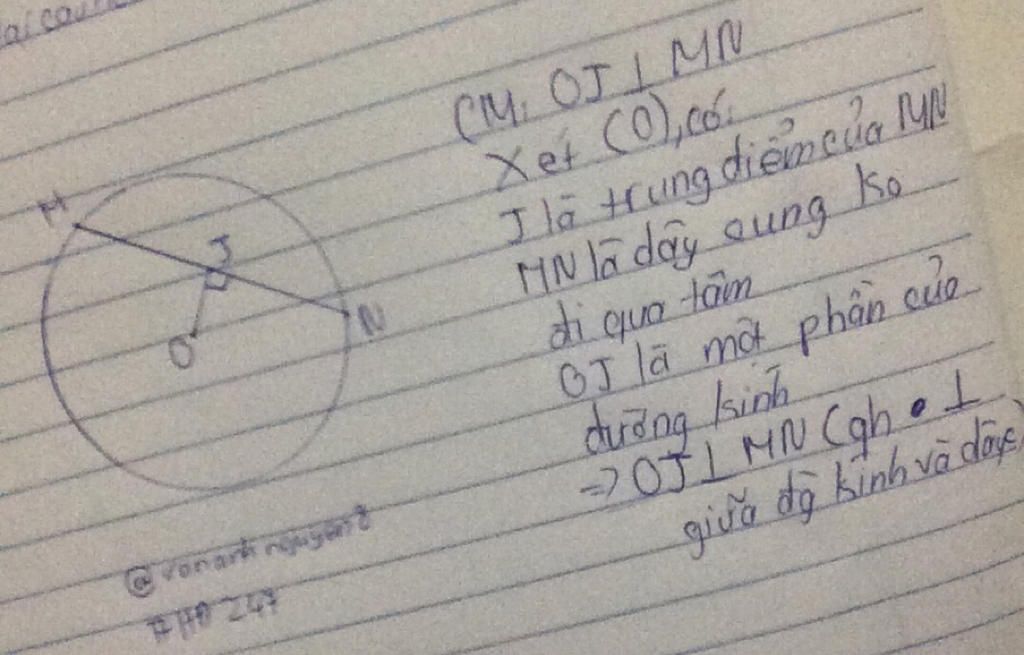 CM: OJ ⊥ MN
Xet (O), có:
J là trung điểm của MN
MN là dây cung ko
đi qua tâm
OJ là một phần của
đường kính
=> OJ ⊥ MN (qh ⊥
giữa đg kính và dây)
M
J
O
N
#HĐ 247